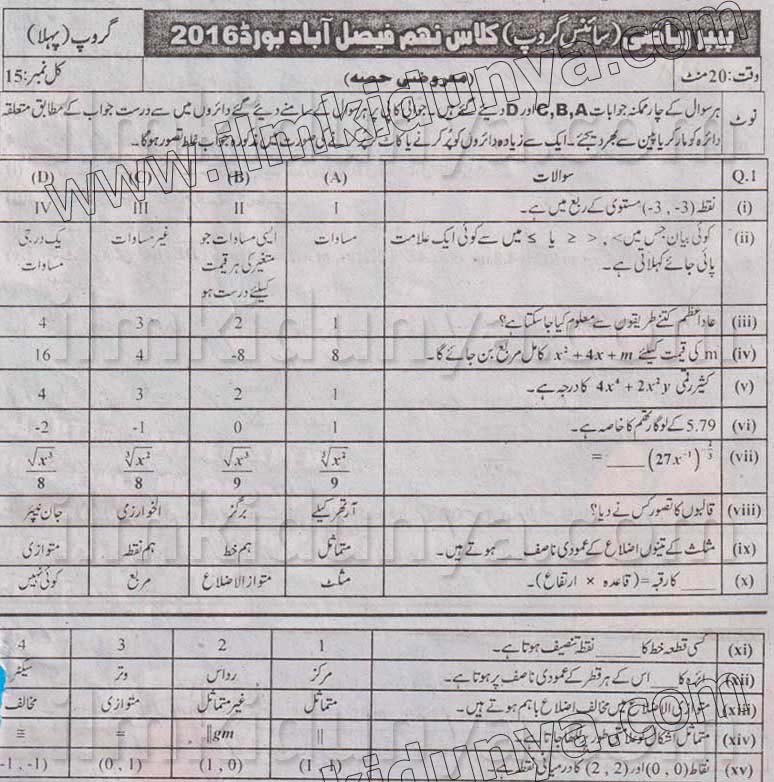 پیپر ریاضی (سائنس گروپ) کلاس نہم فیصل آباد بورڈ 2016 گروپ (پہلا)
وقت: 20 منٹ (معروضی حصہ) کل نمبر: 15
نوٹ ہر سوال کے چار ممکنہ جوابات C,B,A اور D دیئے گئے ہیں۔ جوابی کاپی پر ہر سوال کے سامنے دیئے گئے دائروں میں سے درست جواب کے مطابق متعلقہ
دائرہ کو مارکر یا پین سے بھر دیجئے۔ ایک سے زیادہ دائروں کو پُر کرنے یا کاٹ کر پُر کرنے کی صورت میں مذکورہ جواب غلط تصور ہوگا۔
Q.1 سوالات (A) (B) (C) (D)
(i) نقطہ (-3 , -3) مستوی کے ربع میں ہے۔ I II III IV
(ii) کوئی بیان جس میں > , < , ≥ یا ≤ میں سے کوئی ایک علامت پائی جائے کہلاتی ہے۔ مساوات ایسی مساوات جو متغیر کی ہر قیمت کیلئے درست ہو غیر مساوات یک درجی مساوات
(iii) عاد اعظم کتنے طریقوں سے معلوم کیا جا سکتا ہے؟ 1 2 3 4
(iv) m کی قیمت کیلئے x² + 4x + m کامل مربع بن جائے گا۔ 8 -8 4 16
(v) کثیر رقمی 4x⁴ + 2x²y کا درجہ ہے۔ 1 2 3 4
(vi) 5.79 کے لوگارتھم کا خاصہ ہے۔ 1 0 -1 -2
(vii) (27x⁻¹)^(-2/3) ____ = ∛x²/9 √x³/9 ∛x²/8 √x³/8
(viii) قالبوں کا تصور کس نے دیا؟ آرتھر کیلے برگز الخوارزمی جان نیپئر
(ix) مثلث کے تینوں اضلاع کے عمودی ناصف ____ ہوتے ہیں۔ متماثل ہم خط ہم نقطہ متوازی
(x) ____ کا رقبہ = (قاعدہ × ارتفاع)۔ مثلث متوازی الاضلاع مربع کوئی نہیں
(xi) کسی قطعہ خط کا ____ نقطہ تنصیف ہوتا ہے۔ 1 2 3 4
(xii) دائرہ کا ____ اس کے ہر قطر کے عمودی ناصف پر ہوتا ہے۔ مرکز رداس وتر سیکٹر
(xiii) متوازی الاضلاع میں مخالف اضلاع باہم ہوتے ہیں۔ متماثل غیر متماثل متوازی مخالف
(xiv) متماثل اشکال کو علامتی طور پر لکھا جاتا ہے۔ || ||gm = ≅
(xv) نقاط (0 , 0) اور (2 , 2) کا درمیانی نقطہ ہے۔ (1 , 1) (1 , 0) (0 , 1) (-1 , -1)
www.ilmkidunya.com
ilmkidunya.com